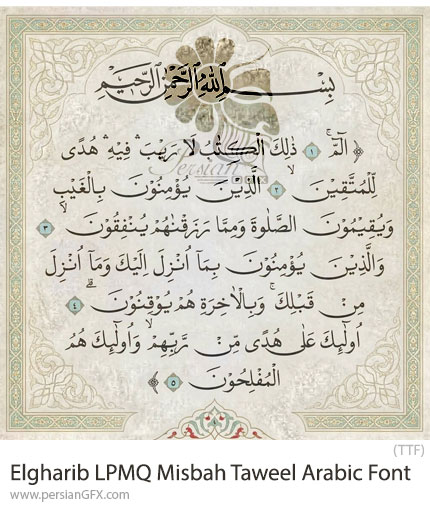 بِسْمِ اللهِ الرَّحْمٰنِ الرَّحِيْمِ
﴿ الٓمّٓ ۚ ١ ذٰلِكَ الْكِتٰبُ لَا رَيْبَ ۛ فِيْهِ ۛ هُدًى
لِّلْمُتَّقِيْنَ ۙ ٢ الَّذِيْنَ يُؤْمِنُوْنَ بِالْغَيْبِ
وَيُقِيْمُوْنَ الصَّلٰوةَ وَمِمَّا رَزَقْنٰهُمْ يُنْفِقُوْنَ ۙ ٣
وَالَّذِيْنَ يُؤْمِنُوْنَ بِمَآ اُنْزِلَ اِلَيْكَ وَمَآ اُنْزِلَ
مِنْ قَبْلِكَ ۚ وَبِالْاٰخِرَةِ هُمْ يُوْقِنُوْنَ ۗ ٤
اُولٰۤىِٕكَ عَلٰى هُدًى مِّنْ رَّبِّهِمْ ۙ وَاُولٰۤىِٕكَ هُمُ
الْمُفْلِحُوْنَ ٥ ﴾
Persian
(TTF)
Elgharib LPMQ Misbah Taweel Arabic Font
www.persianGFX.com